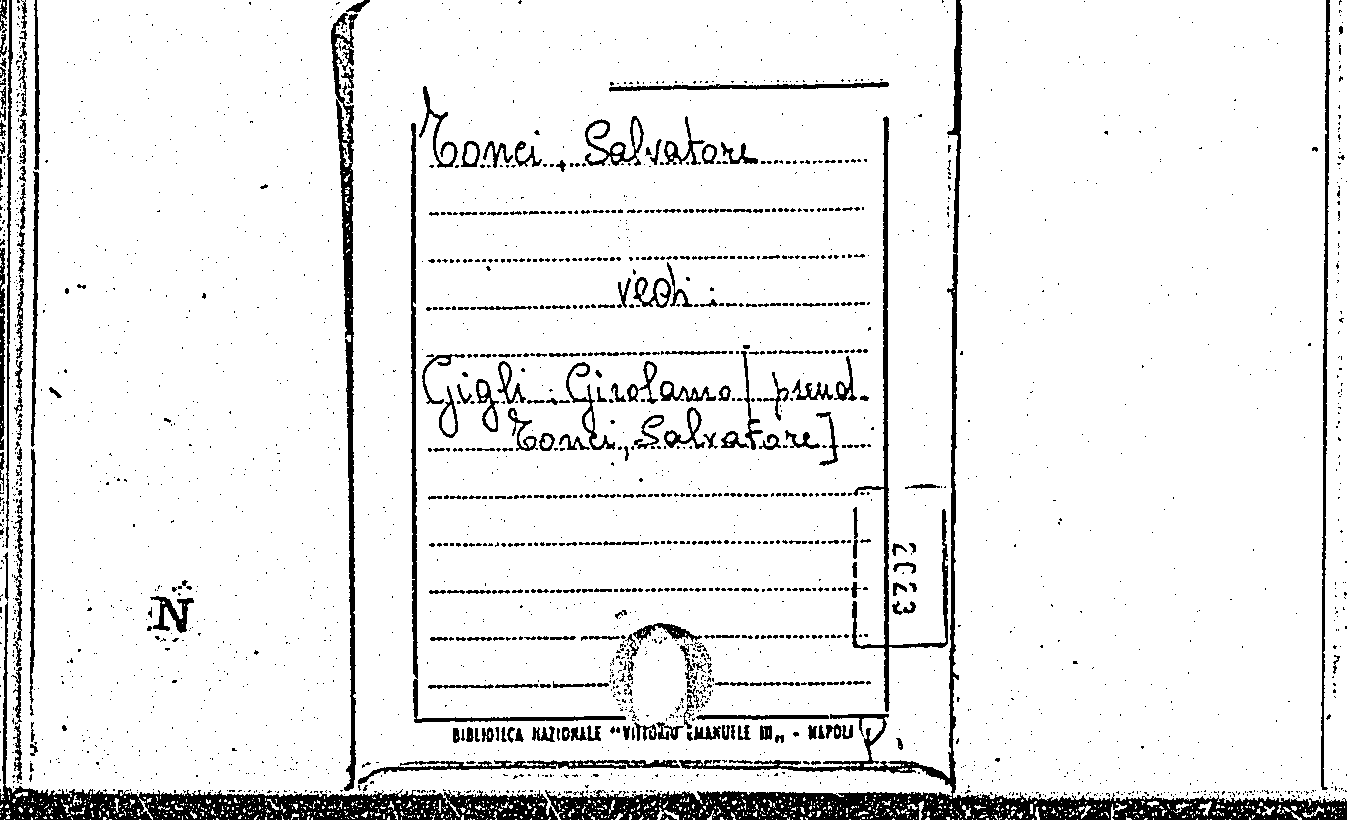 Tonci, Salvatore
vedi:
Gigli, Girolamo [pseud.
Tonci, Salvatore]
2023
N
BIBLIOTECA NAZIONALE "VITTORIO EMANUELE III„ - NAPOLI